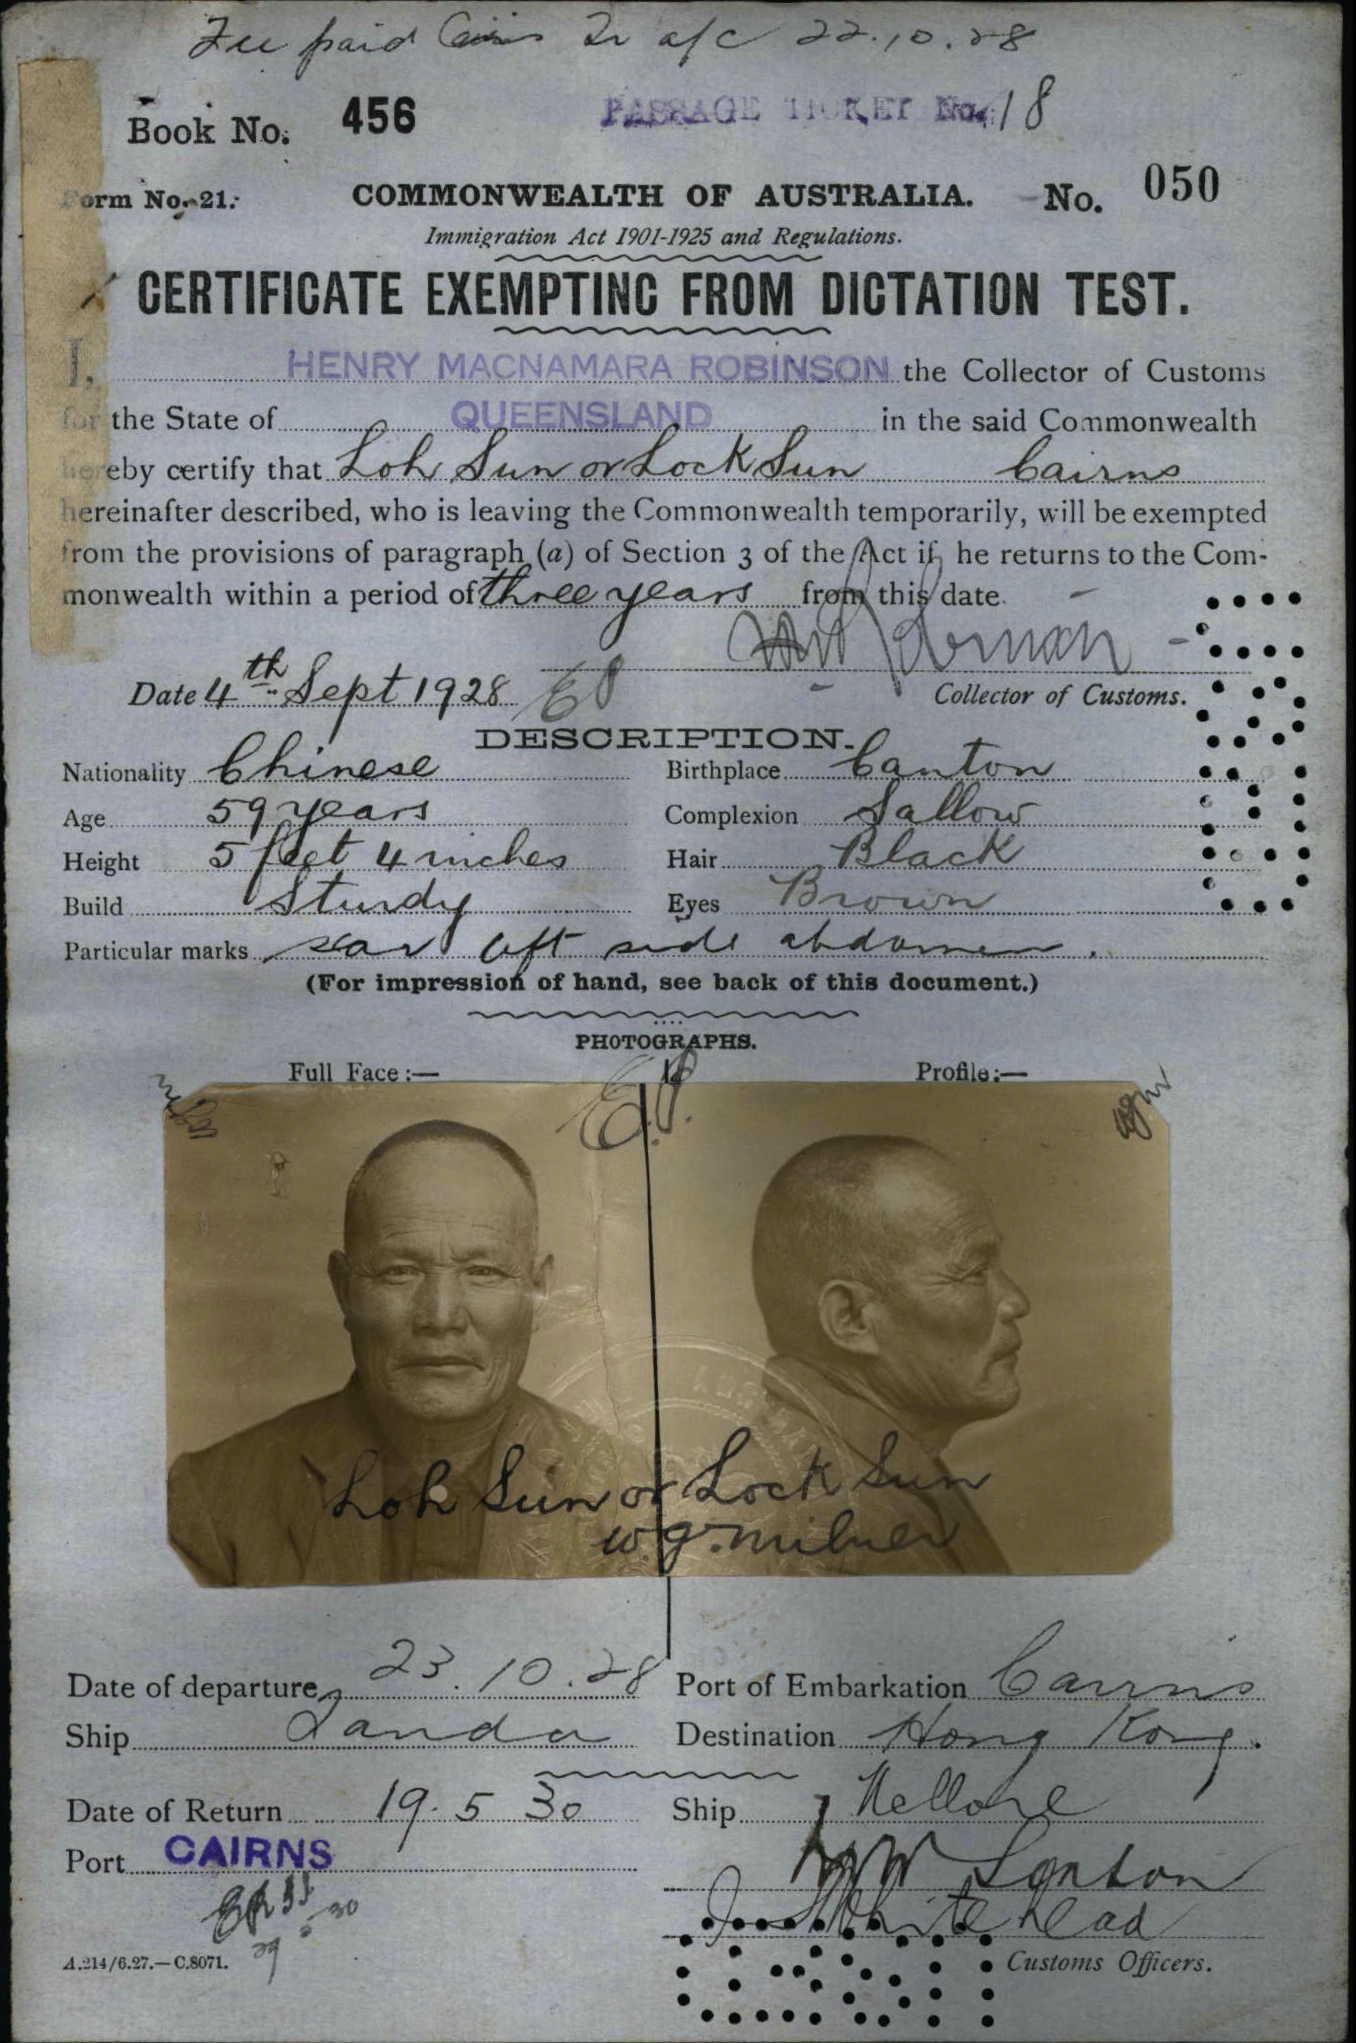 Fee paid Cairns Tr a/c 22.10.28
Book No. 456
PASSAGE TICKET No. 18
Form No. 21.
COMMONWEALTH OF AUSTRALIA. No. 050
Immigration Act 1901-1925 and Regulations.
CERTIFICATE EXEMPTING FROM DICTATION TEST.
I, HENRY MACNAMARA ROBINSON the Collector of Customs
for the State of QUEENSLAND in the said Commonwealth
hereby certify that Loh Sun or Lock Sun Cairns
hereinafter described, who is leaving the Commonwealth temporarily, will be exempted
from the provisions of paragraph (a) of Section 3 of the Act if he returns to the Com-
monwealth within a period of three years from this date.
Date 4th Sept 1928 EP
Collector of Customs.
DESCRIPTION.
Nationality Chinese Birthplace Canton
Age 59 years Complexion Sallow
Height 5 feet 4 inches Hair Black
Build Sturdy Eyes Brown
Particular marks scar left side abdomen.
(For impression of hand, see back of this document.)
PHOTOGRAPHS.
Full Face:— Profile:—
E.P.
Loh Sun or Lock Sun
W.G. Milner
Date of departure 23.10.28 Port of Embarkation Cairns
Ship Tanda Destination Hong Kong.
Date of Return 19.5.30 Ship Nellore
Port CAIRNS
Whitehead
A.214/6.27.—C.8071.
Customs Officers.